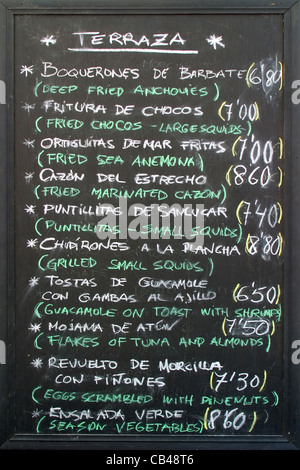 * TERRAZA *
* BOQUERONES DE BARBATE (6'80)
(DEEP FRIED ANCHOVIES)
* FRITURA DE CHOCOS (7'00)
(FRIED CHOCOS - LARGE SQUIDS)
* ORTIGUITAS DE MAR FRITAS (7'00)
(FRIED SEA ANEMONA)
* CAZÓN DEL ESTRECHO (8'60)
(FRIED MARINATED CAZÓN)
* PUNTILLITAS DE SANLUCAR (7'40)
(PUNTILLITAS SMALL SQUIDS)
* CHIPIRONES A LA PLANCHA (8'80)
(GRILLED SMALL SQUIDS)
* TOSTAS DE GUACAMOLE
CON GAMBAS AL AJILLO (6'50)
(GUACAMOLE ON TOAST WITH SHRIMPS)
* MOJAMA DE ATÚN (7'50)
(FLAKES OF TUNA AND ALMONDS)
* REVUELTO DE MORCILLA
CON PIÑONES (7'30)
(EGGS SCRAMBLED WITH PINENUTS)
* ENSALADA VERDE (8'60)
(SEASON VEGETABLES)
alamy
CB48T6